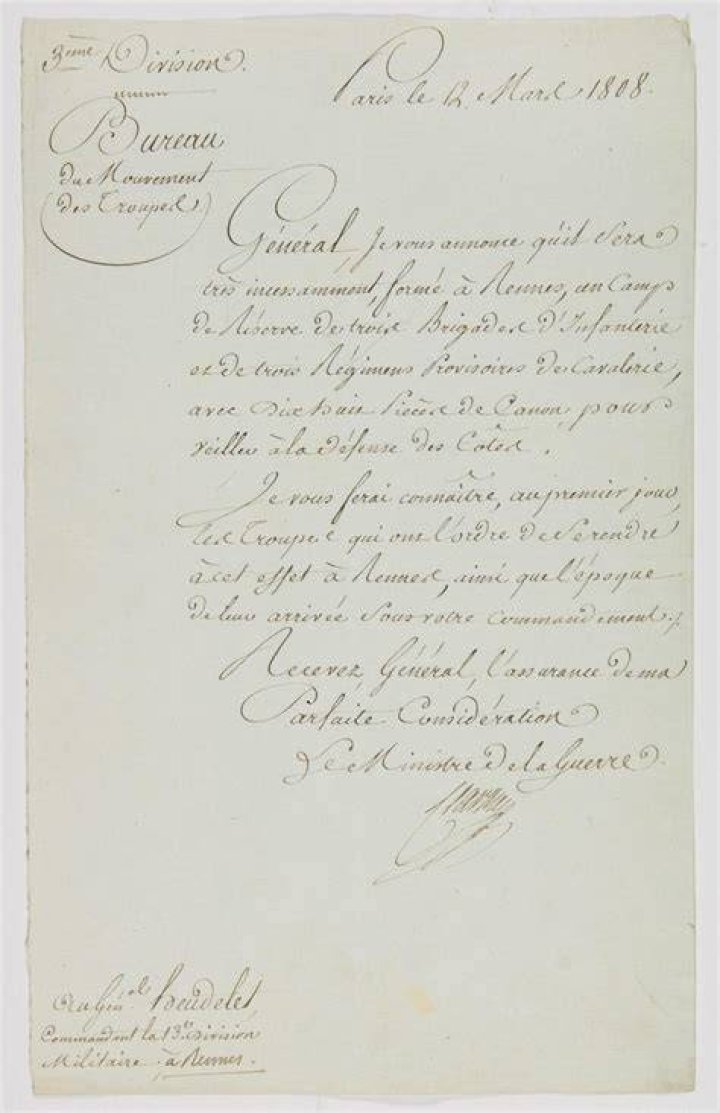 3ème Division.
Bureau
du Mouvement
(des Troupes)
Paris le 12 Mars 1808.
Général, Je vous annonce qu'il sera
très incessamment, formé à Rennes, un Camp
de Réserve de trois Brigades d'Infanterie
et de trois Régimens Provisoires de Cavalerie,
avec Dix huit Pièces de Canon, pour
veiller à la défense des Côtes.
Je vous ferai connaître, au premier jour,
les Troupes qui ont l'ordre de se rendre
à cet effet à Rennes, ainsi que l'époque
de leur arrivée sous votre commandement./.
Recevez, Général, l'assurance de ma
Parfaite Considération
Le Ministre de la Guerre.
Au Génal. Heudelet,
Commandant la 13e. Division
Militaire à Rennes.